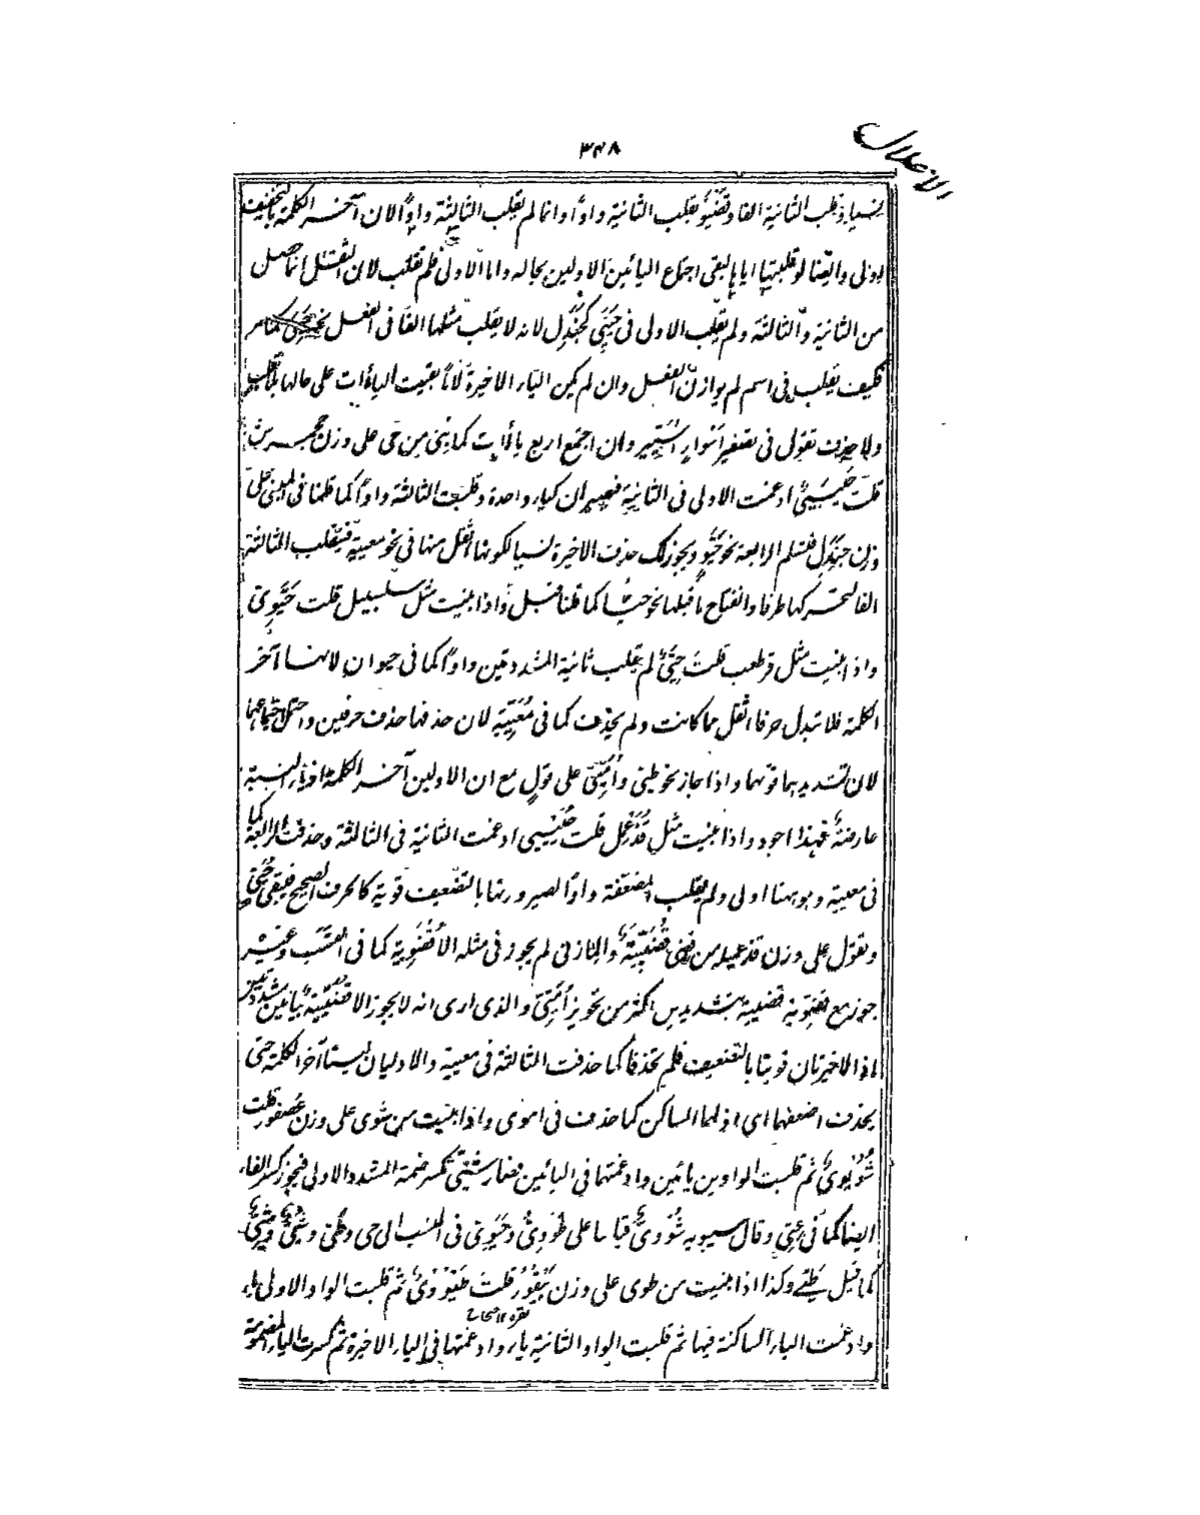 ٣٤٨
الاعلال
الثانية الفا و بقلب الثانية واوا وانما لم يقلب الثالثة واوا لان آخر الكلمة بالتخفيف
اولى وايضا لو قلبتها ابقى اجتماع اليائين الاولين بحاله واما الاولى فلم تقلب لان الثقل انما حصل
من الثانية والثالثة ولم يقلب الاولى فى حيى كجندل لانه لا يقلب مثلها الفا فى الفعل نحو
فكيف يقلب فى اسم لم يوازن الفعل وان لم يكن الياء الاخيرة بقيت الياءات على حالها بلا قلب
ولا حذف تقول فى تصغير اسوار اسيير وان اجتمع اربع ياءات كما اذا بنى من حى على وزن جحمرش
قلت ادغمت الاولى فى الثانية فيصيران كياء واحدة وقلبت الثالثة واوا كما قلنا فى المبنى على
وزن جندل فتسلم الرابعة نحو ويجوز لك حذف الاخيرة نسيا لكونها اثقل منها فى نحو معيية فيقلب الثالثة
الفا لتحركها طرفا وانفتاح ما قبلها نحو كما قلنا قبل واذا بنيت مثل سلسبيل قلت
واذا بنيت مثل قرطعب قلت حيى لم يقلب ثانية المشددتين واوا كما فى حيوان لانها آخر
الكلمة فلا تبدل حرفا اثقل مما كانت ولم يحذف كما فى معيية لان حذفها حذف حرفين واحتمل اجتماعهما
لان تشديدهما قوتهما واذا جاز نحو طيى و اميى على قول مع ان الاولين آخر الكلمة اذ ياء النسبة
عارضة فهذا اجود واذا بنيت مثل قذعمل قلت ادغمت الثانية فى الثالثة وحذفت الرابعة كما
فى معيية وهو هنا اولى ولم يقلب المضعفة واوا لصيرورتها بالتضعيف قوية كالحرف الصحيح فيبقى حيى
وتقول على وزن قذعميلة من قضى قضيية والمازنى لم يجوز فى مثله الا قضوية كما فى النسب وغيره
جوز مع قضوية قضيية بتشديدين اكثر من تجويز اميى والذى ارى انه لا يجوز الا قضيية بيائين مشددتين
اذ الاخيرتان قويتا بالتضعيف فلم تحذفا كما حذفت الثالثة فى معيية والاوليان ليستا آخر الكلمة حتى
يحذف اضعفهما اى اولهما الساكن كما حذف فى اموى واذا بنيت من شوى على وزن عصفور قلت
شويوى ثم قلبت الواوين يائين وادغمتهما فى اليائين فصار شيى بكسر ضمة المشدد الاولى فيجوز كسر الفاء
ايضا كما فى عتى وقال سيبويه شووى قياسا على طووى وحيوى فى النسب الى حى وطى
كما قيل طيى وكذا اذا بنيت من طوى على وزن بيقور قلت طيووى ثم قلبت الواو الاولى ياء
وادغمت الياء الساكنة فيها ثم قلبت الواو الثانية ياء وادغمتها فى الياء الاخيرة ثم كسرت الياء المضمومة